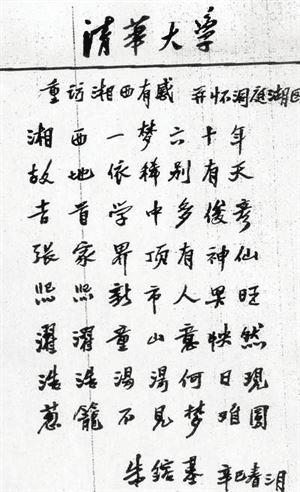 清华大学
重访湘西有感 并怀洞庭湖区
湘西一梦六十年
故地依稀别有天
吉首学中多俊彦
张家界顶有神仙
熙熙新市人兴旺
濯濯童山意怏然
浩浩汤汤何日现
葱茏不见梦难圆
朱镕基 辛巳春三月